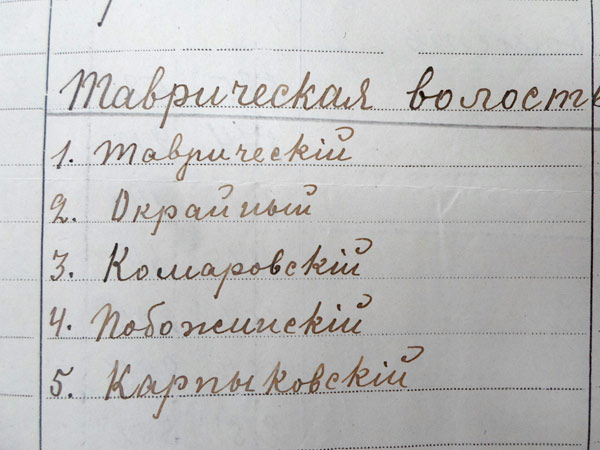 Таврическая волость
1. Таврическій
2. Окрайный
3. Комаровскій
4. Побожинскій
5. Карпыковскій